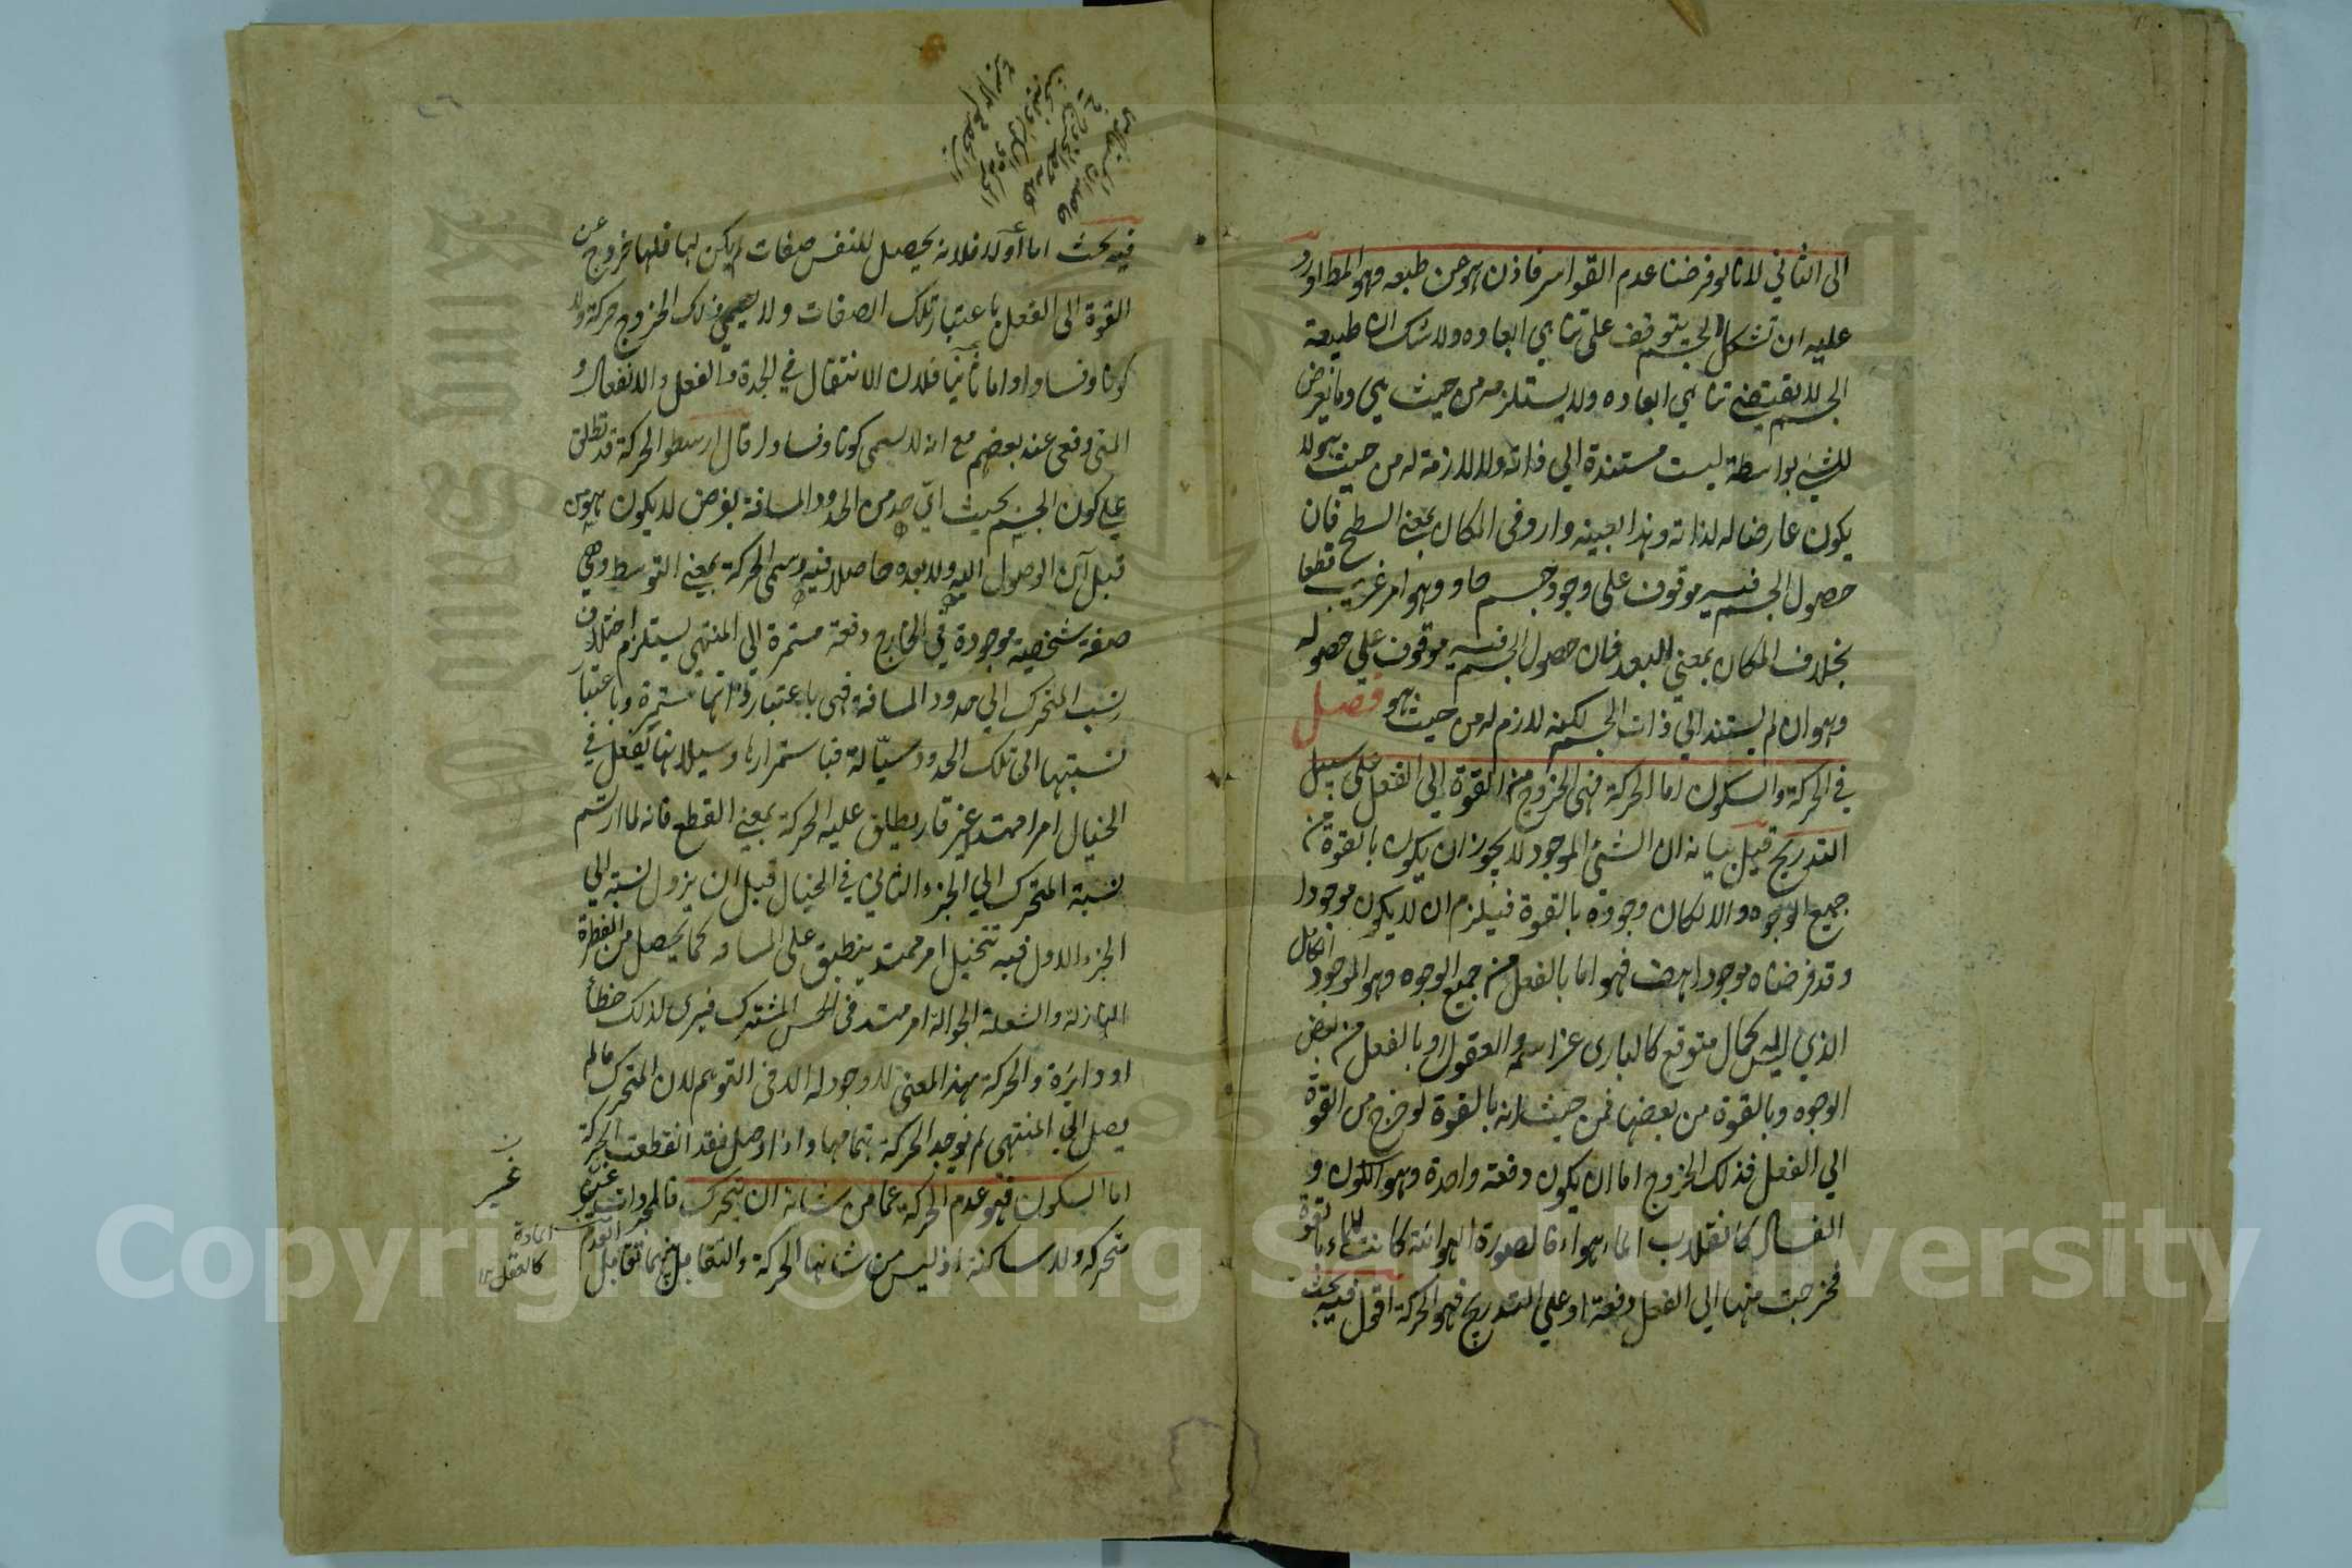 الى الثاني لانا لو فرضنا عدم القواسر فاذن هو عن طبعه وهو المط اورد
عليه ان تشكل الجسم يتوقف على تناهي ابعاده ولا شك ان طبيعة
الجسم لا تقتضي تناهي ابعاده ولا يستلزمه من حيث هي وما يعرض
للشيئ بواسطة ليست مستندة الي ذاته ولا لازمة له من حيث هو لا
يكون عارضا له لذاته وهذا بعينه وارد في المكان بمعنى السطح فان
حصول الجسم فيه موقوف على وجود جسم حاو وهو امر غريب قطعا
بخلاف المكان بمعني البعد فان حصول الجسم فيه موقوف علي حصوله
وهو ان لم يستند الي ذات الجسم لكنه لازم له من حيث هو فصل
في الحركة والسكون اما الحركة فهي الخروج من القوة الي الفعل على سبيل
التدريج قيل بيانه ان الشئ الموجود لا يجوز ان يكون بالقوة من
جميع الوجوه والا لكان وجوده بالقوة فيلزم ان لا يكون موجودا
وقد فرضناه موجودا هف فهو اما بالفعل من جميع الوجوه وهو الموجود الكامل
الذي ليس له كمال متوقع كالبارى عز اسمه والعقول او بالفعل من بعض
الوجوه وبالقوة من بعضها فمن حيث انه بالقوة لو خرج من القوة
الي الفعل فذلك الخروج اما ان يكون دفعة واحدة وهو الكون و
الفساد كانقلاب الماء هواء فالصورة الهوائية كانت للماء بالقوة
فخرجت منها الي الفعل دفعة او علي التدريج فهو الحركة اقول فيه بحث
فيه بحث اما اولا فلانه يحصل للنفس صفات لم يكن لها فلها خروج عن
القوة الى الفعل باعتبار تلك الصفات ولا يسمى ذلك الخروج حركة ولا
كونا وفسادا واما ثانيا فلان الانتقال في الجدة والفعل والانفعال و
المتى دفعى عند بعضهم مع انه لا يسمى كونا وفسادا قال ارسطو الحركة قد تطلق
علي كون الجسم بحيث اي حد من الحدود المسافة يفرض لا يكون هو من
قبل آن الوصول اليه ولا بعده حاصلا فيه وسمى الحركة بمعنى التوسط وهي
صفة شخصية موجودة في الخارج دفعة مستمرة الي المنتهي يستلزم اختلاف
نسب المتحرك الي حدود المسافة فهي باعتبار ذاتها مستمرة وباعتبار
نسبتها الى تلك الحدود سيالة فباستمرارها وسيلانها يفعل في
الخيال امرا ممتدا غير قار يطلق عليه الحركة بمعنى القطع فانه لما ارتسم
نسبة المتحرك الي الجزء الثاني في الخيال قبل ان يزول نسبته الي
الجزء الاول فيه تتخيل امر ممتد ينطبق على المسافه كما يحصل من القطرة
النازلة والشعلة الجوالة امر ممتد في الحس المشترك فيرى لذلك خطا
او دايرة والحركة بهذا المعنى لا وجود له الا في التوهم لان المتحرك ما لم
يصل الي المنتهى لم يوجد الحركة بتمامها واذا وصل فقد انقطعت الحركة
اما السكون فهو عدم الحركة عما من شانه ان يتحرك فالمجردات غير
متحركه ولا ساكنة اذ ليس من شانها الحركة والتقابل بينهما تقابل العدم
غير